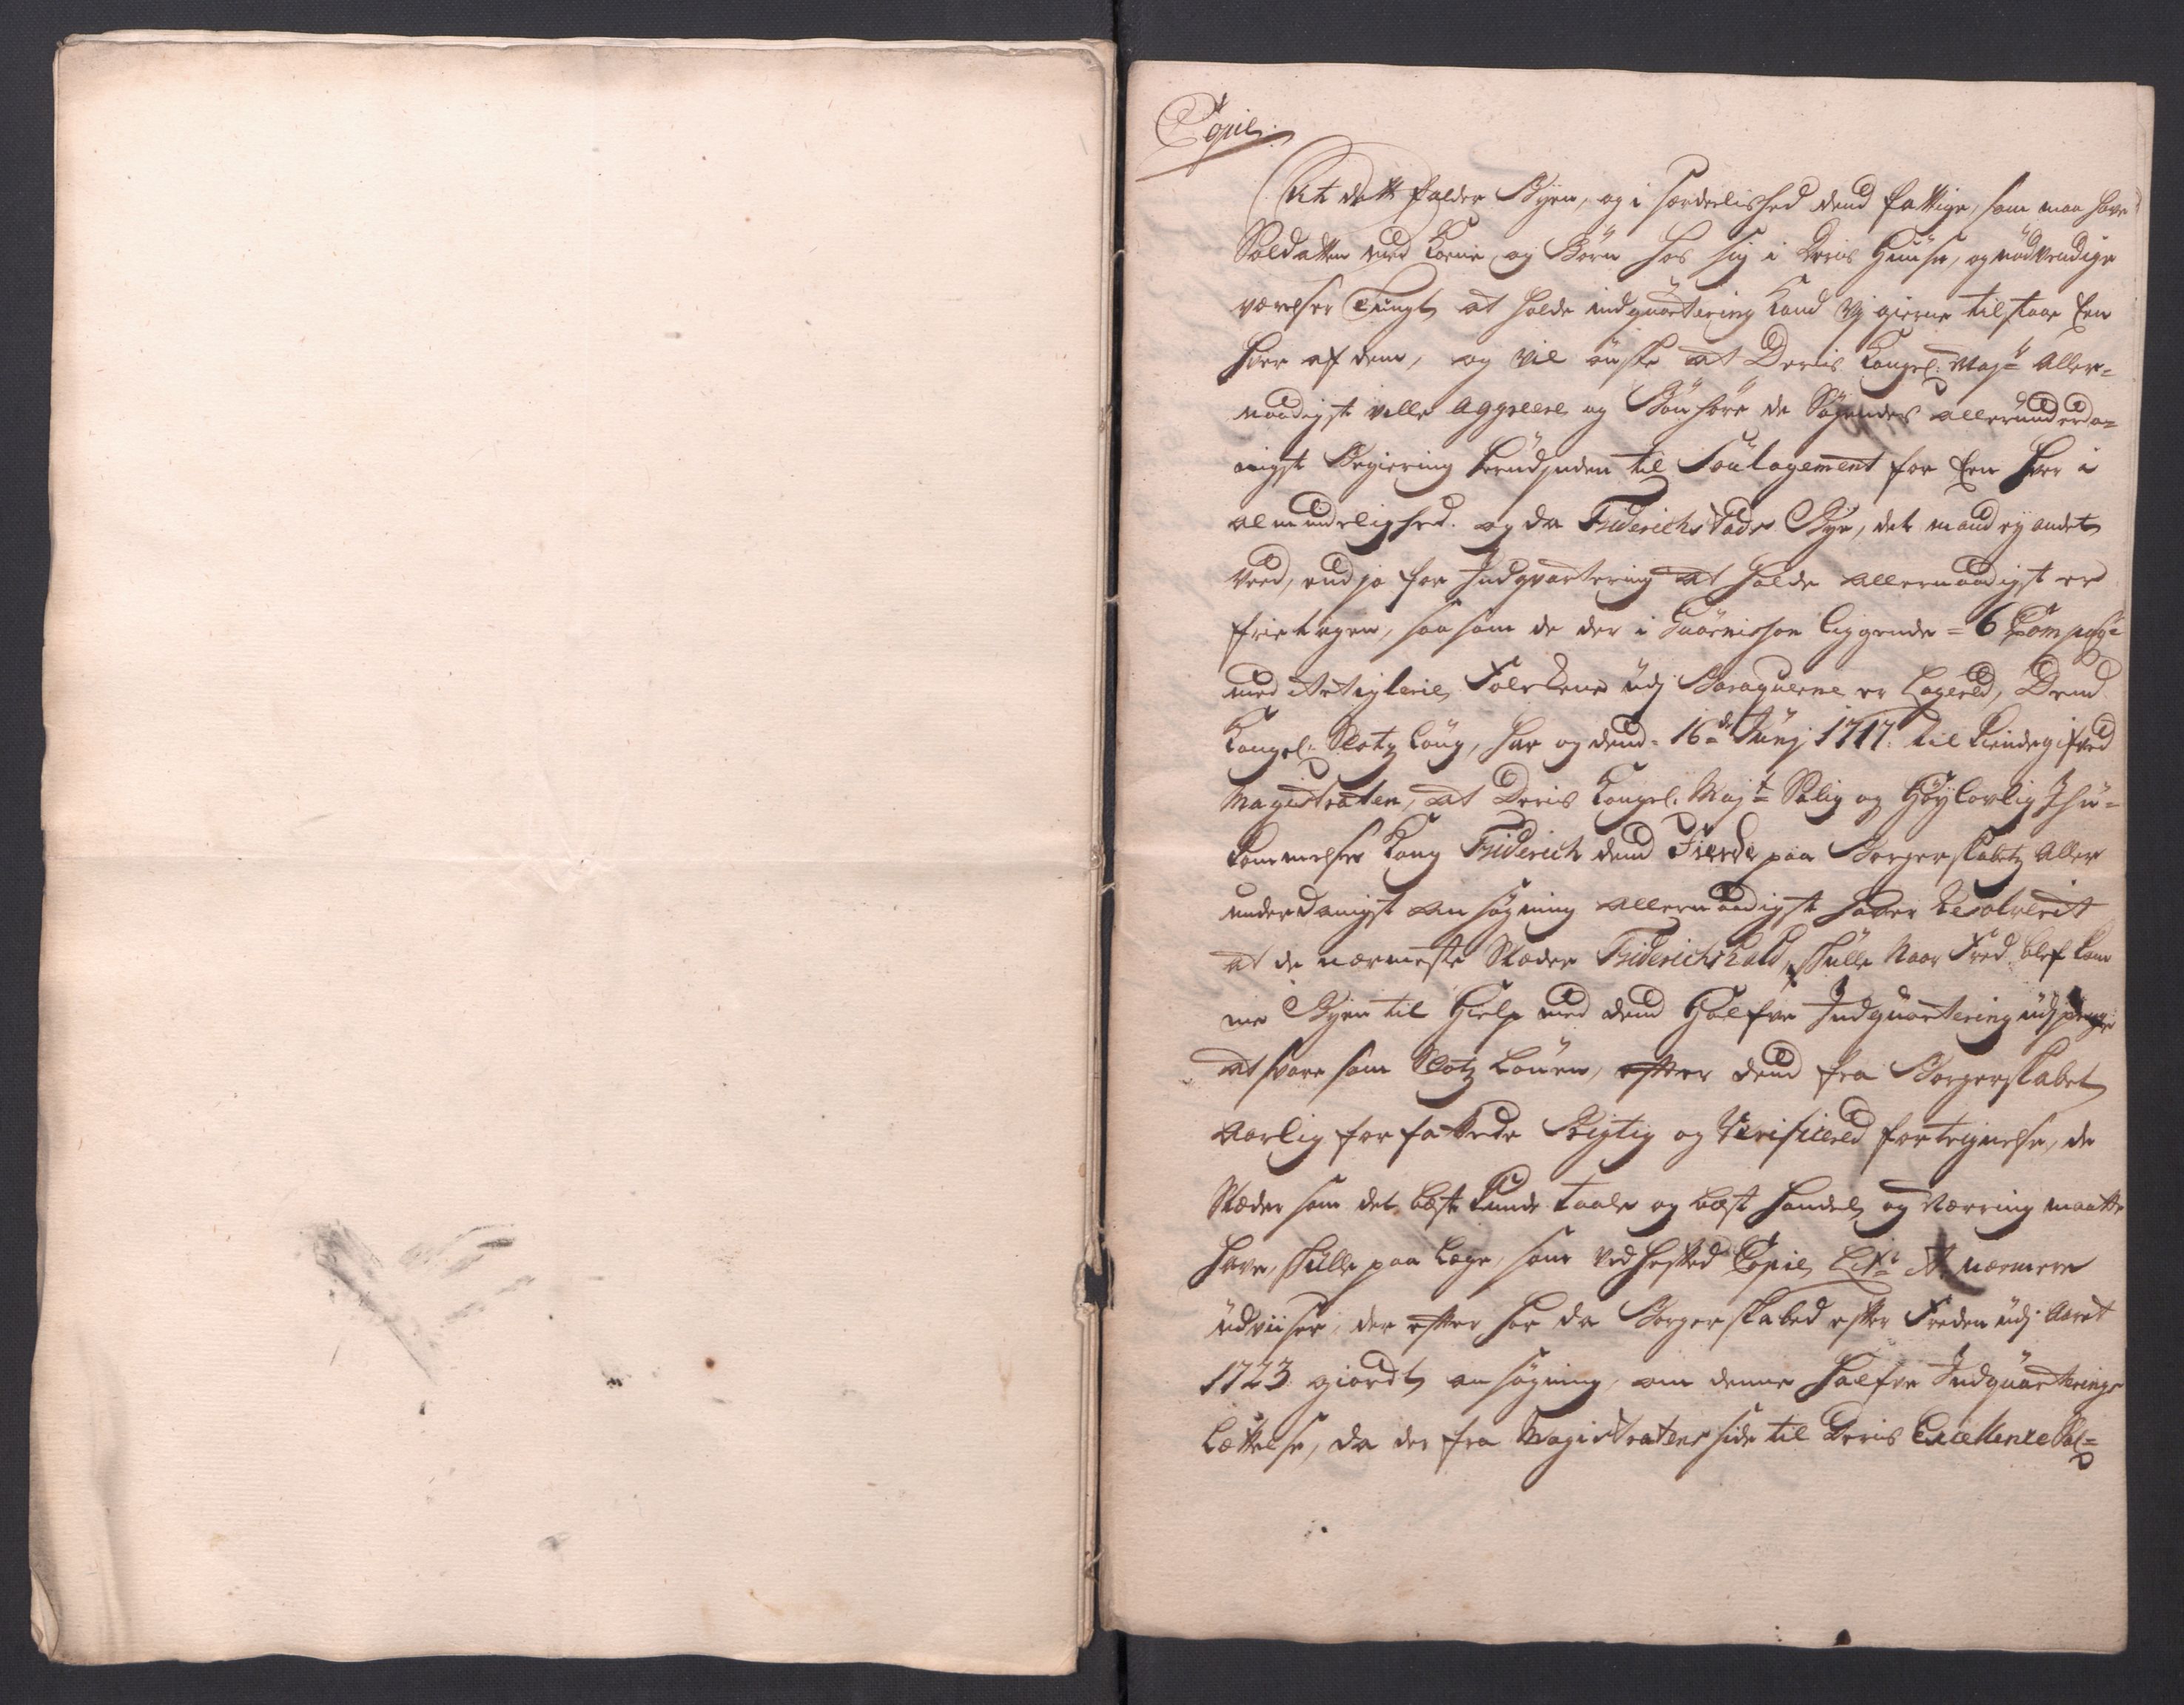 Copie.
At dett falder Byen, og i særdelished dend fattige, som maa have
Soldatten med Konne og Börn hos sig i deris Huuse, og nödvendige
værelser Tungt at holde indquartering kand vj gierne tilstaae Een
hver af dem, og vil önske at Deris Kongel: Mayt: Aller-
naadigst ville aggreere og Bönhöre de Søgendes allerunderda-
nigst Begiering henseende til Soulagement for Een hver i
almindelighed. og da Friderichstads Bye, det mand ey andet
veed, end jo for Indqvartering at holde allernaadigst er
frietagen, saasom de der i Guarnisson liggende = 6 Compag:
med Artiglerie Folckene udj Baraquerne er Logered, Dend
Kongel: Slotz Loug, har og dend 16de Junj 1717. tilkiendegifved
Magistraten, at Deris Kongel: Mayt: Salig og Höylovlig Ihu-
kommelse Kong Friderich dend Fierde paa Borgerskabetz Aller
underdanigst ansøgning allernaadigst haver Resolverit
at de nærmeste Stæder Friderichshald, skulle Naar Fred blef kom
me Byen til Hielp med dend Halfve Indquartering udj penge
at svare som Slotz Louen, efter dend fra Borgerskabet
Aarlig forfattede Rigtig og Verificered fortegnelse, de
Stæder som det best kunde taale og best handel og Nærring maatte
have, skulle paa Legge, som vedhefted Copie Litr: A nærmere
udviiser, der efter har da Borgerskabed efter Freden udj Aaret
1723 giordt ansøgning, om denne halfve Indquarterings
Lettelse, da der fra Magistratens side til Deris Excellence Sal-